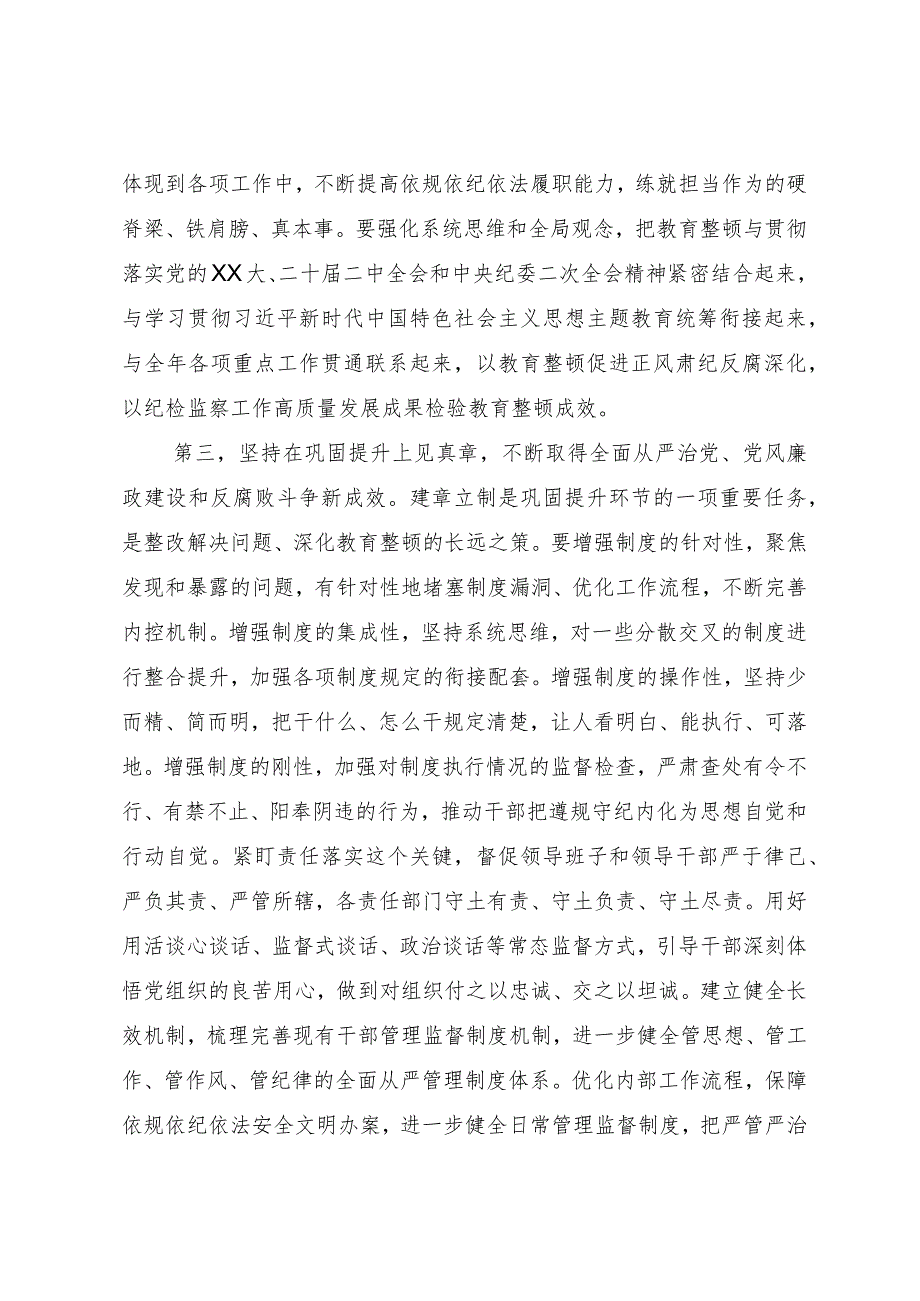 体现到各项工作中，不断提高依规依纪依法履职能力，练就担当作为的硬
脊梁、铁肩膀、真本事。要强化系统思维和全局观念，把教育整顿与贯彻
落实党的XX大、二十届二中全会和中央纪委二次全会精神紧密结合起来，
与学习贯彻习近平新时代中国特色社会主义思想主题教育统筹衔接起来，
与全年各项重点工作贯通联系起来，以教育整顿促进正风肃纪反腐深化，
以纪检监察工作高质量发展成果检验教育整顿成效。
第三，坚持在巩固提升上见真章，不断取得全面从严治党、党风廉
政建设和反腐败斗争新成效。建章立制是巩固提升环节的一项重要任务，
是整改解决问题、深化教育整顿的长远之策。要增强制度的针对性，聚焦
发现和暴露的问题，有针对性地堵塞制度漏洞、优化工作流程，不断完善
内控机制。增强制度的集成性，坚持系统思维，对一些分散交叉的制度进
行整合提升，加强各项制度规定的衔接配套。增强制度的操作性，坚持少
而精、简而明，把干什么、怎么干规定清楚，让人看明白、能执行、可落
地。增强制度的刚性，加强对制度执行情况的监督检查，严肃查处有令不
行、有禁不止、阳奉阴违的行为，推动干部把遵规守纪内化为思想自觉和
行动自觉。紧盯责任落实这个关键，督促领导班子和领导干部严于律己、
严负其责、严管所辖，各责任部门守土有责、守土负责、守土尽责。用好
用活谈心谈话、监督式谈话、政治谈话等常态监督方式，引导干部深刻体
悟党组织的良苦用心，做到对组织付之以忠诚、交之以坦诚。建立健全长
效机制，梳理完善现有干部管理监督制度机制，进一步健全管思想、管工
作、管作风、管纪律的全面从严管理制度体系。优化内部工作流程，保障
依规依纪依法安全文明办案，进一步健全日常管理监督制度，把严管严治